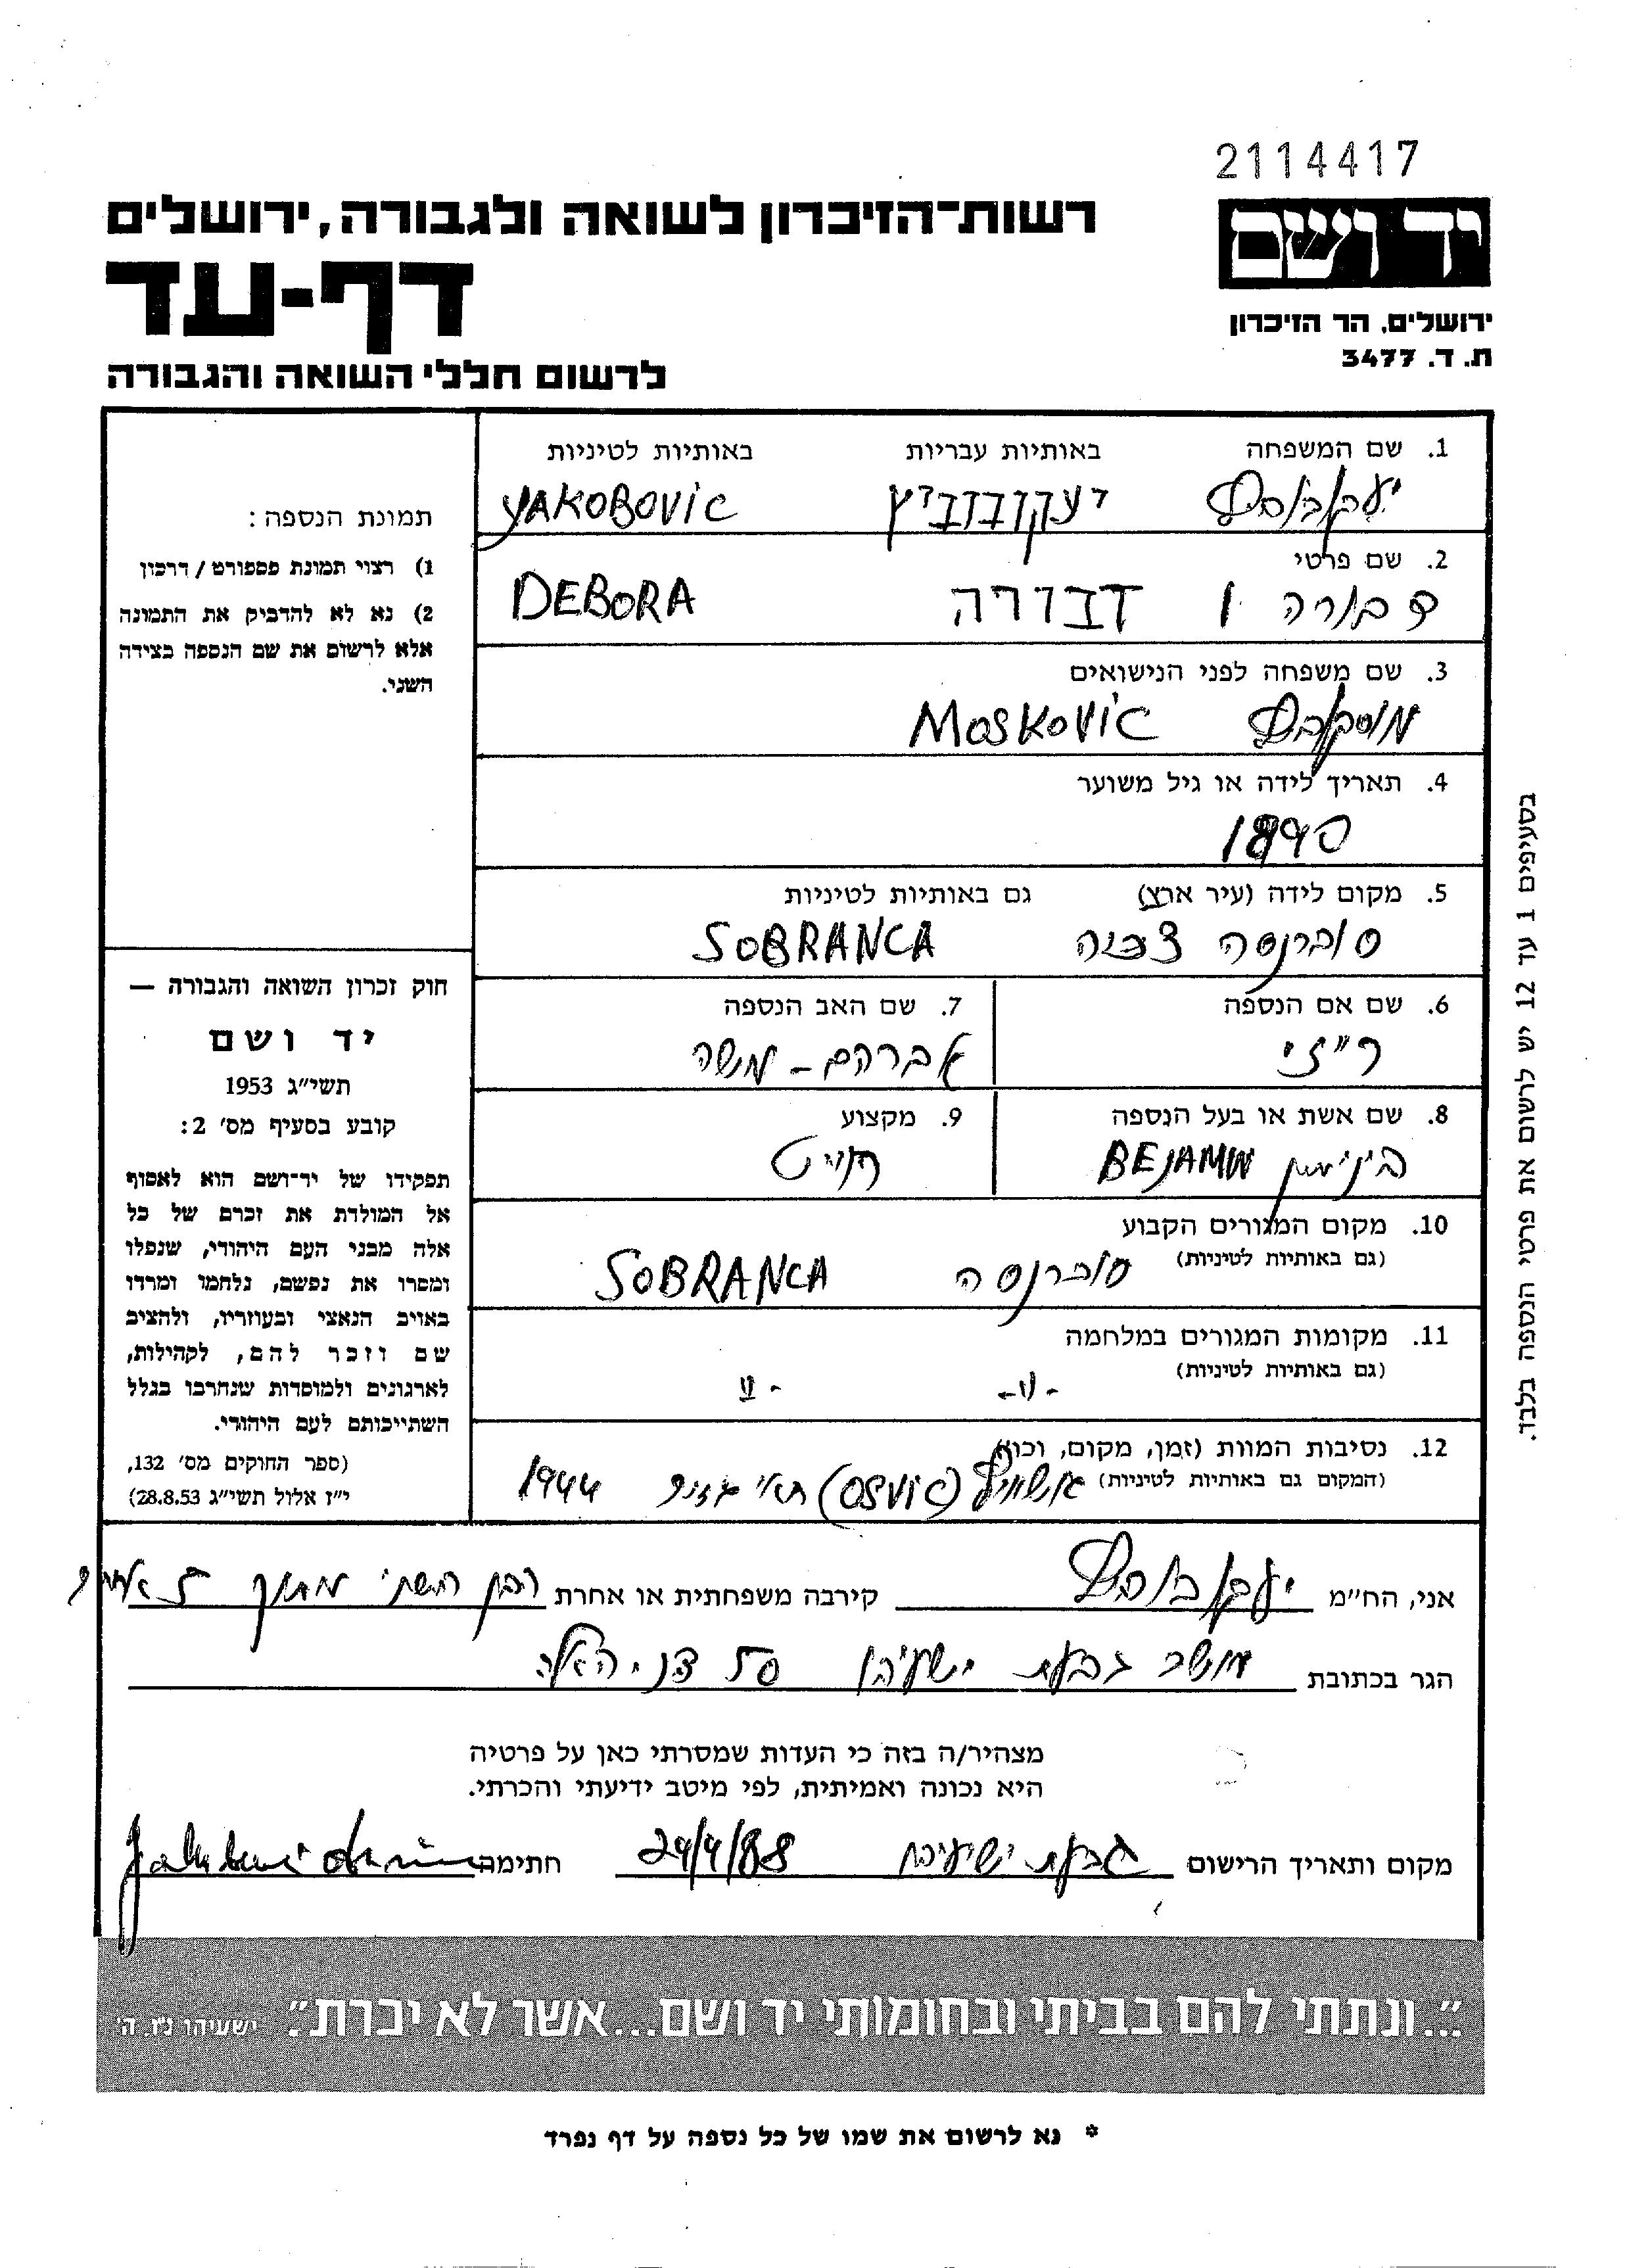 2114417
יד ושם
רשות־הזיכרון לשואה ולגבורה, ירושלים
דף-עד
ירושלים, הר הזיכרון
ת. ד. 3477
לרשום חללי השואה והגבורה
1. שם המשפחה באותיות עבריות באותיות לטיניות
יעקובוביץ יעקובוביץ YAKOBOVIC
2. שם פרטי
דבורה דבורה DEBORA
3. שם משפחה לפני הנישואים
מוסקוביץ MOSKOVIC
4. תאריך לידה או גיל משוער
1890
5. מקום לידה (עיר ארץ) גם באותיות לטיניות
סוברנסה צכיה SOBRANCA
6. שם אם הנספה
7. שם האב הנספה
אברהם - משה
8. שם אשת או בעל הנספה
בינימין BEJAMIN
9. מקצוע
חייט
10. מקום המגורים הקבוע
(גם באותיות לטיניות)
סוברנסה SOBRANCA
11. מקומות המגורים במלחמה
(גם באותיות לטיניות)
-״- -״
12. נסיבות המוות (זמן, מקום, וכו׳)
(המקום גם באותיות לטיניות) אושוויץ (OSVIC) תאי גזים 1944
תמונת הנספה:
1) רצוי תמונת פספורט / דרכון
2) נא לא להדביק את התמונה
אלא לרשום את שם הנספה בצידה
השני.
חוק זכרון השואה והגבורה —
יד ושם
תשי״ג 1953
קובע בסעיף מס׳ 2:
תפקידו של יד־ושם הוא לאסוף
אל המולדת את זכרם של כל
אלה מבני העם היהודי, שנפלו
ומסרו את נפשם, נלחמו ומרדו
באויב הנאצי ובעוזריו, ולהציב
שם וזכר להם, לקהילות,
לארגונים ולמוסדות שנחרבו בגלל
השתייכותם לעם היהודי.
(ספר החוקים מס׳ 132,
י״ז אלול תשי״ג 28.8.53)
בסעיפים 1 עד 12 יש לרשום את פרטי הנספה בלבד.
אני, הח״מ יעקובוביץ קירבה משפחתית או אחרת הבן
הגר בכתובת מושב גבעת ישעיהו 50 ד.נ. האלה
מצהיר/ה בזה כי העדות שמסרתי כאן על פרטיה
היא נכונה ואמיתית, לפי מיטב ידיעתי והכרתי.
מקום ותאריך הרישום גבעת ישעיהו 24/4/88 חתימה
״...ונתתי להם בביתי ובחומותי יד ושם...אשר לא יכרת״. ישעיהו נ״ו, ה׳
* נא לרשום את שמו של כל נספה על דף נפרד